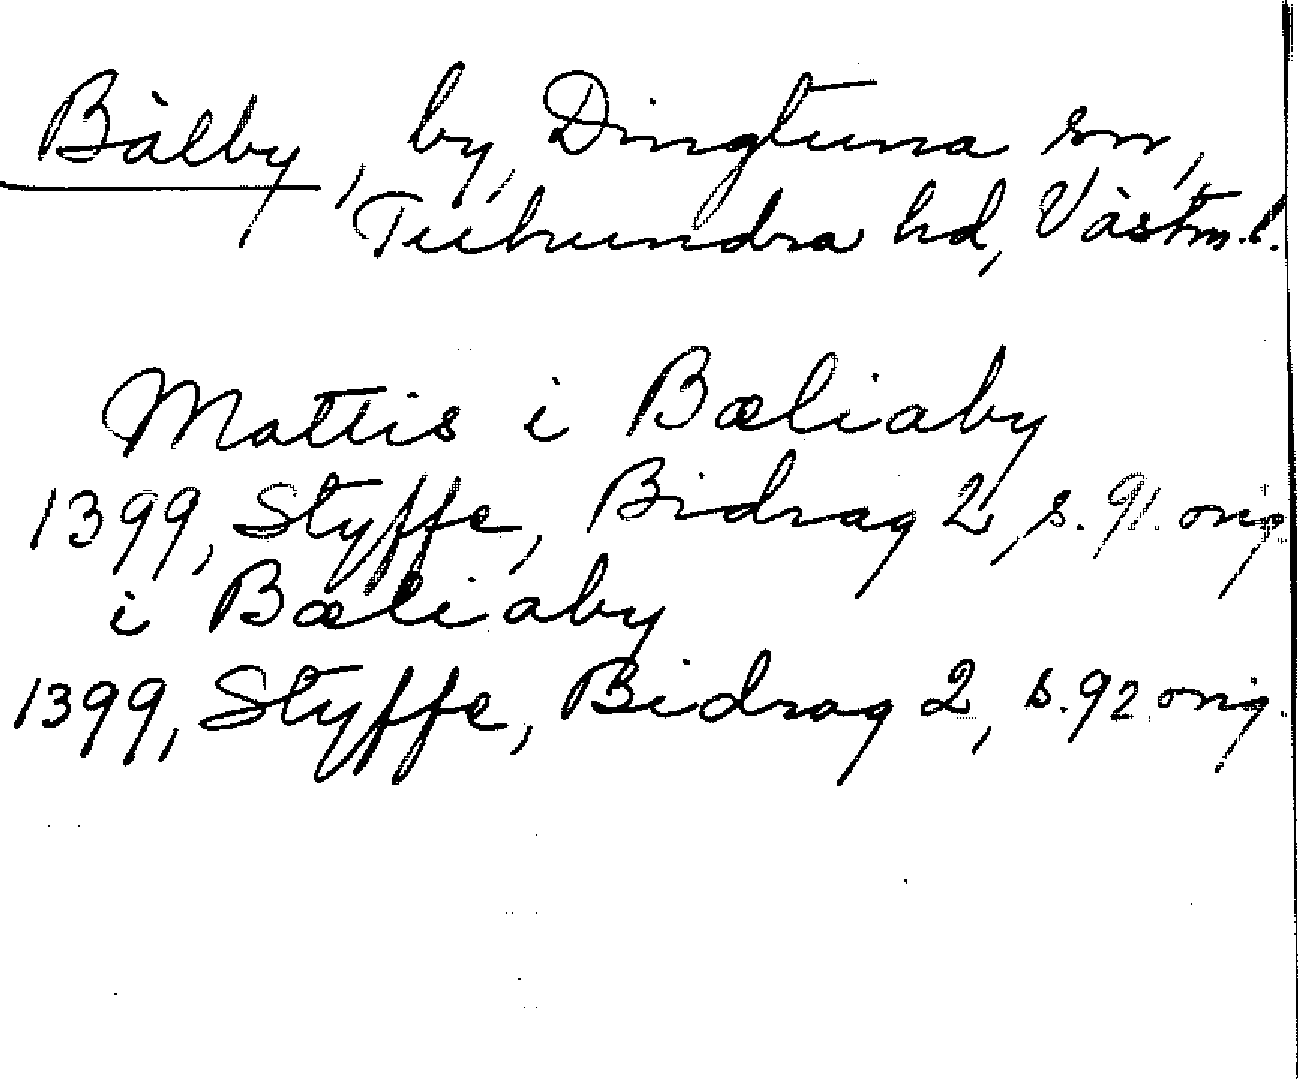 Bälby, by, Dingtuna sn,
Tuhundra hd, Västm. l.
Mattis i Bæliaby
1399, Styffe, Bidrag 2, s. 91. orig.
i Bæliaby
1399, Styffe, Bidrag 2, s. 92 orig.